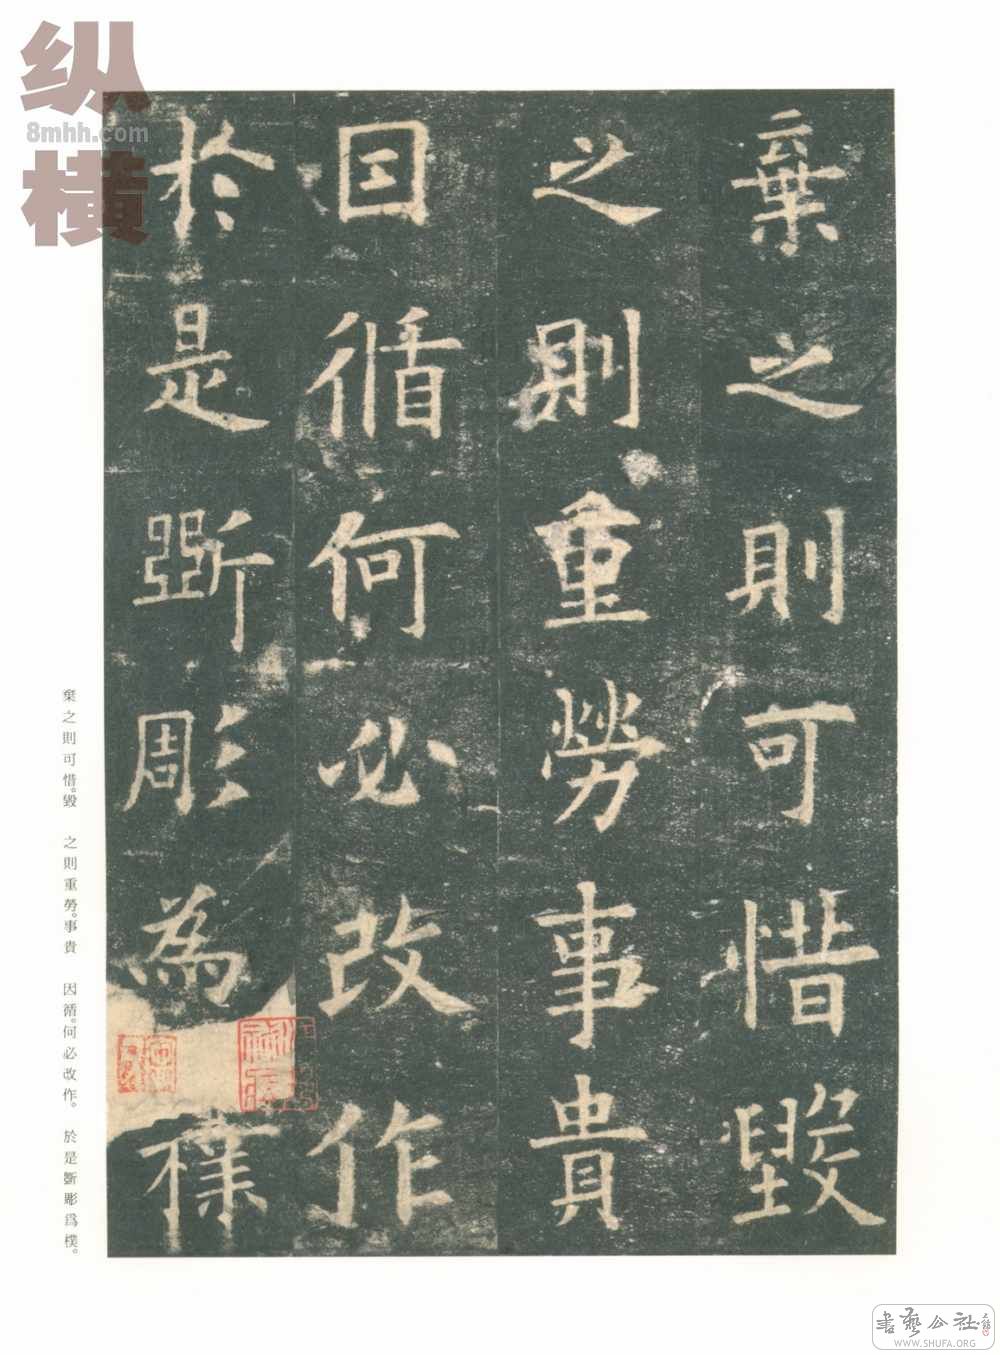 棄之則可惜毀
之則重勞事貴
因循何必改作
於是斲彫為樸
棄之則可惜。毀 之則重勞。事貴 因循。何必改作。 於是斲彫爲樸。
纵横
8mhh.com
書藝公社
WWW.SHUFA.ORG